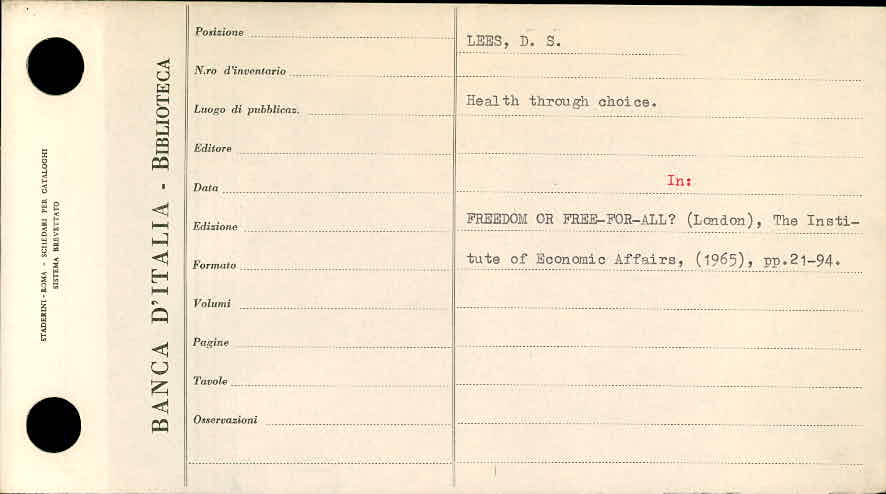 STADERINI-ROMA - SCHEDARI PER CATALOGHI
SISTEMA BREVETTATO
BANCA D'ITALIA - BIBLIOTECA
Posizione
N.ro d'inventario
Luogo di pubblicaz.
Editore
Data
Edizione
Formato
Volumi
Pagine
Tavole
Osservazioni
LEES, D. S.
Health through choice.
In:
FREEDOM OR FREE-FOR-ALL? (London), The Insti-
tute of Economic Affairs, (1965), pp.21-94.